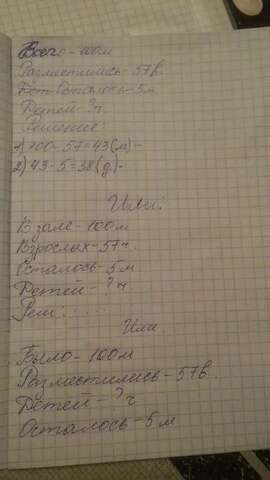 Всего - 100м
Разместились - 57в.
Осталось - 5м
Детей - ? ч
Решение:
1) 100-57=43(м) -
2) 43-5=38(д) -
Или:
В зале - 100м
Взрослых - 57ч
Осталось - 5м
Детей - ? ч
Реш: .....
Или
Было - 100м
Разместились - 57в.
Детей - ? ч
Осталось - 5м